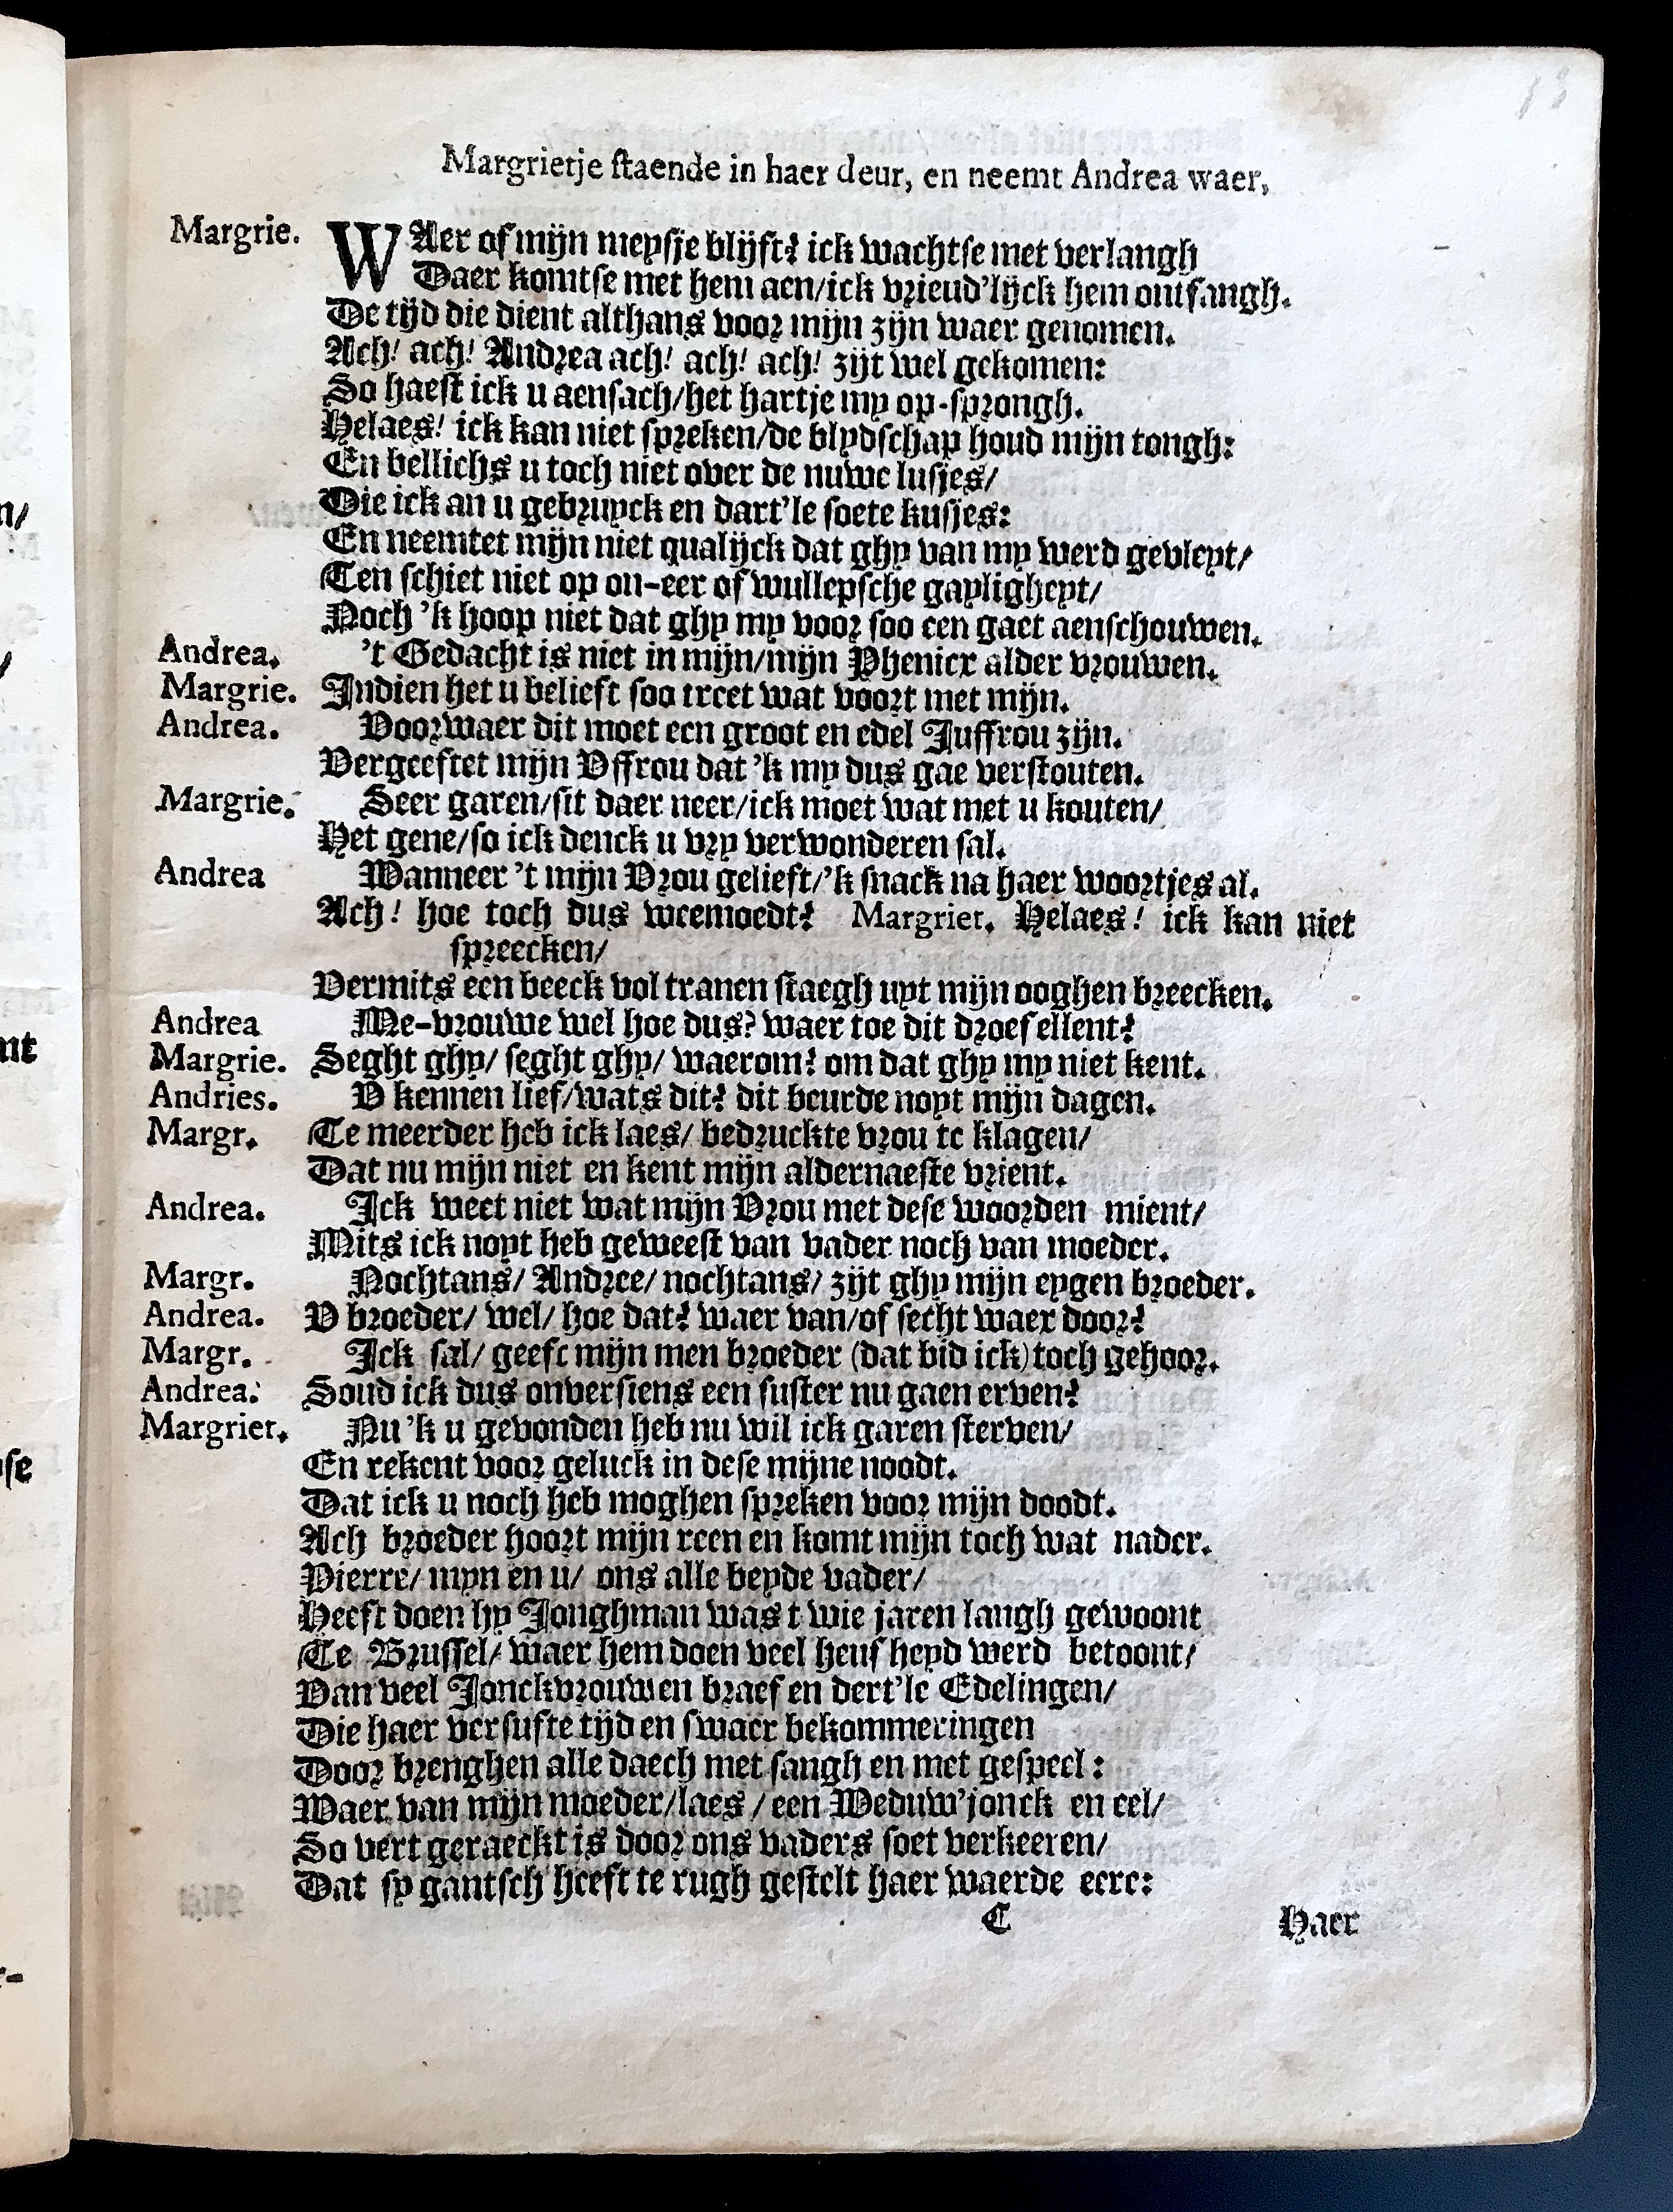 Margrietje staende in haer deur, en neemt Andrea waer,
Margrie. WAer of mijn meysje blijft? ick wachtse met verlangh
Daer komtse met hem aen/ick vrieud'lijck hem ontfangh.
De tijd die dient althans voor mijn zijn waer genomen.
Ach! ach! Andrea ach! ach! ach! zijt wel gekomen:
So haest ick u aensach/het hartje my op-sprongh.
Helaes! ick kan niet spreken/de blydschap houd mijn tongh:
En bellichs u toch niet over de nuwe lusjes/
Die ick an u gebruyck en dart'le soete kusjes:
En neemtet mijn niet qualijck dat ghy van my werd gevleyt/
Ten schiet niet op on-eer of wulleysche gaylighept/
Noch 'k hoop niet dat ghy my voor soo een gaet aenschouwen.
Andrea. 't Gedacht is niet in mijn/mijn Phenicx alder vrouwen.
Margrie. Indien het u belieft soo treet wat voort met mijn.
Andrea. Voorwaer dit moet een groot en edel Juffrou zijn.
Vergeeftet mijn Vffrou dat 'k my dus gae verstouten.
Margrie. Seer garen/sit daer neer/ick moet wat met u kouten/
Het gene/so ick denck u vry verwonderen sal.
Andrea Wanneer 't mijn Vrou gelieft/'k snack na haer woortjes al.
Ach! hoe toch dus weemoedt? Margriet. Helaes! ick kan niet
spreecken/
Vermits een beeck vol tranen staegh uyt mijn ooghen breecken.
Andrea Me-vrouwe wel hoe dus? waer toe dit droef ellent?
Margrie. Seght ghy/ seght ghy/ waerom? om dat ghy my niet kent.
Andries. V kennen lief/wats dit? dit beurde noyt mijn dagen.
Margr. Te meerder heb ick laes/ bedruckte vrou te klagen/
Dat nu mijn niet en kent mijn aldernaeste vrient.
Andrea. Ick weet niet wat mijn Vrou met dese woorden mient/
Mits ick noyt heb geweest van vader noch van moeder.
Margr. Nochtans/ Andree/ nochtans/ zijt ghy mijn eygen broeder.
Andrea. V broeder/ wel/ hoe dat? waer van/of secht waer door?
Margr. Ick sal/ geefc mijn men broeder (dat bid ick) toch gehoor.
Andrea. Soud ick dus onversiens een suster nu gaen erven?
Margriet. Nu 'k u gevonden heb nu wil ick garen sterven/
En rekent voor geluck in dese mijne noodt.
Dat ick u noch heb moghen spreken voor mijn doodt.
Ach broeder hoort mijn reen en komt mijn toch wat nader.
Pierre/ myn en u/ ons alle beyde vader/
Heeft doen hy Joughman was t wie jaren langh gewoont
Te Brussel/ waer hem doen veel heus heyd werd betoont/
Van veel Jonckvrouwen braef en dert'le Edelingen/
Die haer versufte tijd en swaer bekommeringen
Door brenghen alle daech met sangh en met gespeel:
Waer van mijn moeder/laes/een Weduw'jonck en eel/
So vert geraeckt is door ons vaders soet verkeeren/
Dat sy gantsch heeft te rugh gestelt haer waerde eere:
C Haer